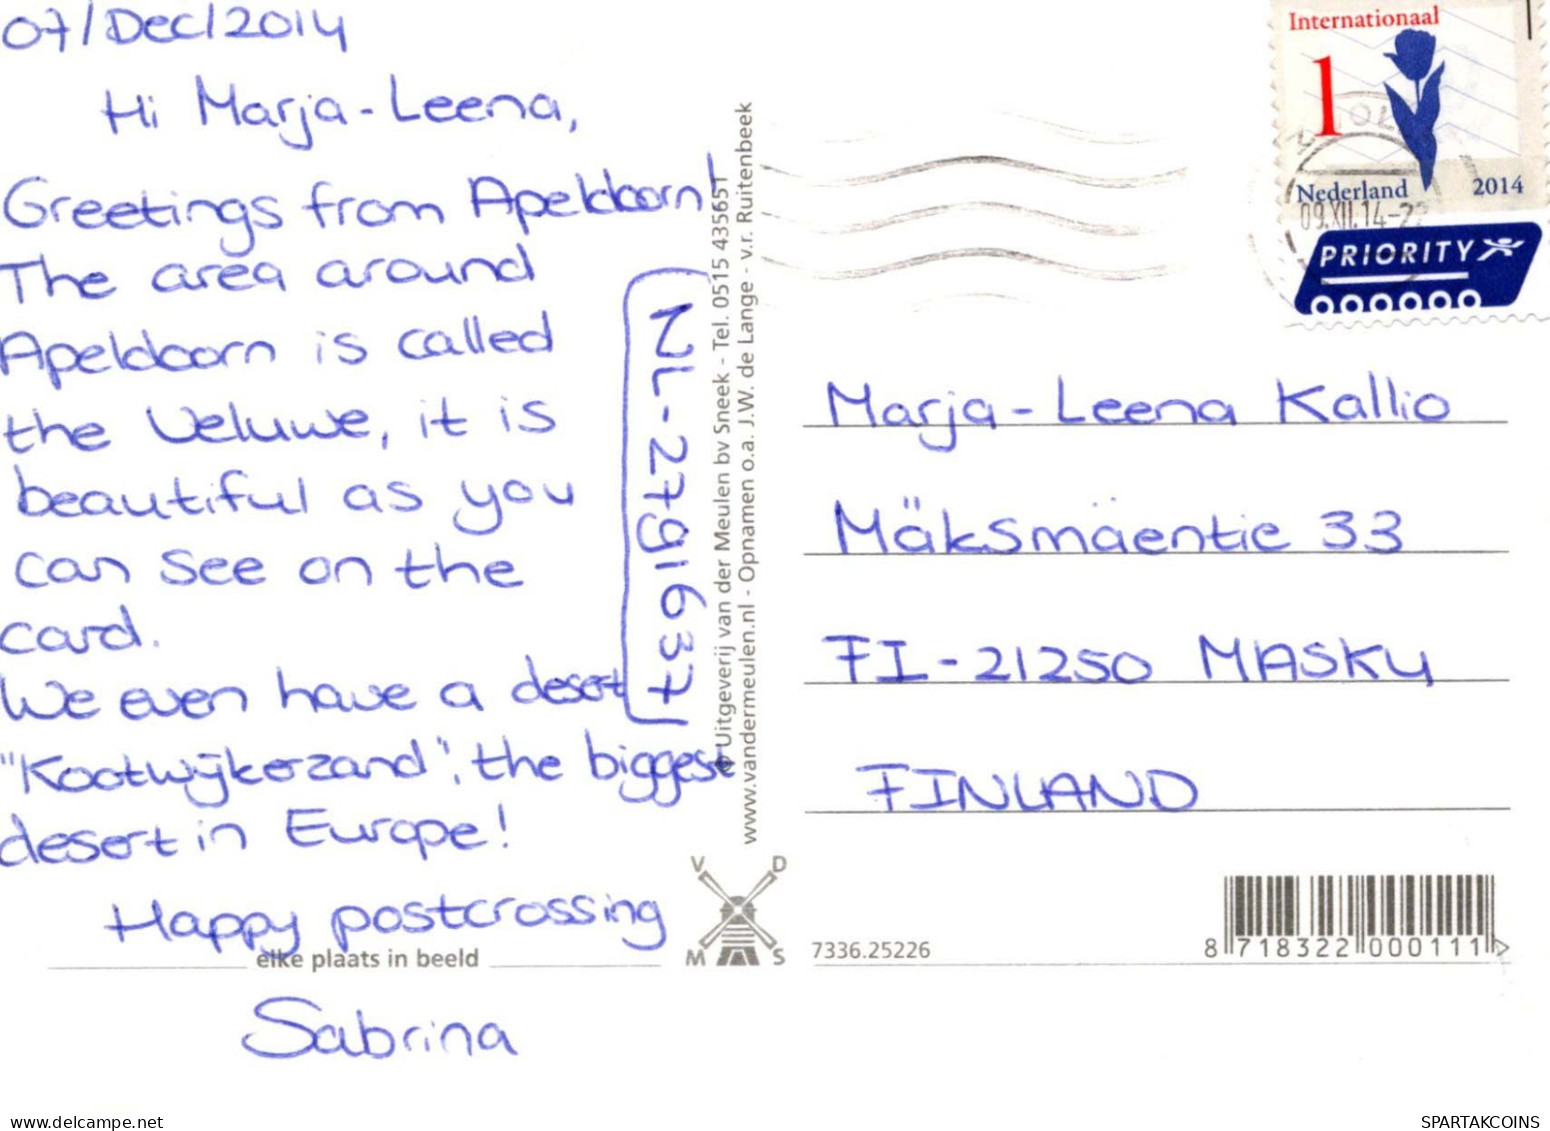 07/Dec/2014
Hi Marja-Leena,
Greetings from Apeldoorn!
The area around
Apeldoorn is called
the Veluwe, it is
beautiful as you
can see on the
card.
We even have a desert
"Kootwijkerzand", the biggest
desert in Europe!
Happy postcrossing
Sabrina
elke plaats in beeld
NL-2791637
© Uitgeverij van der Meulen bv Sneek - Tel. 0515 435651
www.vandermeulen.nl - Opnamen o.a. J.W. de Lange - v.r. Ruitenbeek
V D
M S
Internationaal
1
Nederland 2014
09.XII.14-22
PRIORITY
Marja-Leena Kallio
Mäksmäentie 33
FI-21250 MASKU
FINLAND
7336.25226
8 718322 000111 >
www.delcampe.net
SPARTAKCOINS